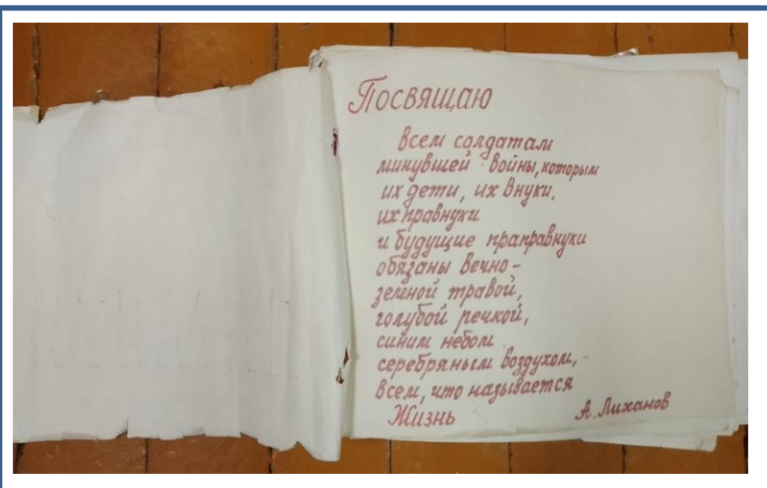 Посвящаю
всем солдатам
минувшей войны, которым
их дети, их внуки,
их правнуки
и будущие праправнуки
обязаны вечно -
зеленой травой,
голубой речкой,
синим небом
серебряным воздухом, -
всем, что называется
Жизнь
А. Лиханов